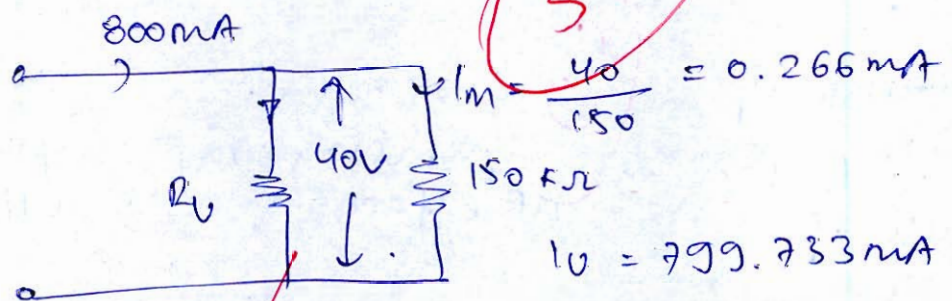 800mA
Im = 40/150 = 0.266 mA
Ru
40V
150 kΩ
Iu = 799.733 mA